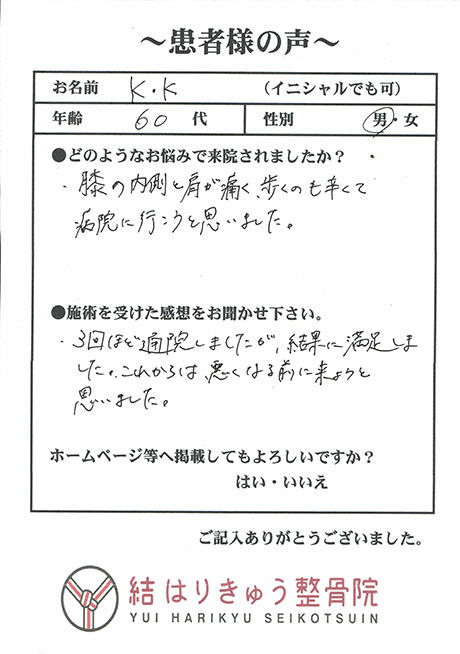 ～患者様の声～
お名前 K.K （イニシャルでも可）
年齢 60 代 性別 男・女
●どのようなお悩みで来院されましたか？
・膝の内側と肩が痛く、歩くのも辛くて
病院に行こうと思いました。
●施術を受けた感想をお聞かせ下さい。
・3回ほど通院しましたが、結果に満足しま
した。これからは悪くなる前に来ようと
思いました。
ホームページ等へ掲載してもよろしいですか？
はい・いいえ
ご記入ありがとうございました。
結 はりきゅう整骨院
YUI HARIKYU SEIKOTSUIN